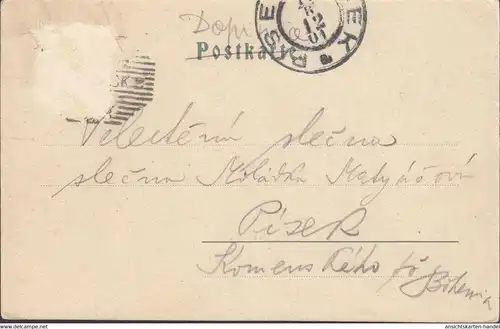 Dopisnice
Postkarte
PISEK
Velectěná slečna
slečna Miládka Matyášová
Písek
Komenského
Böhemia
www.ansichtskarten-handel.com